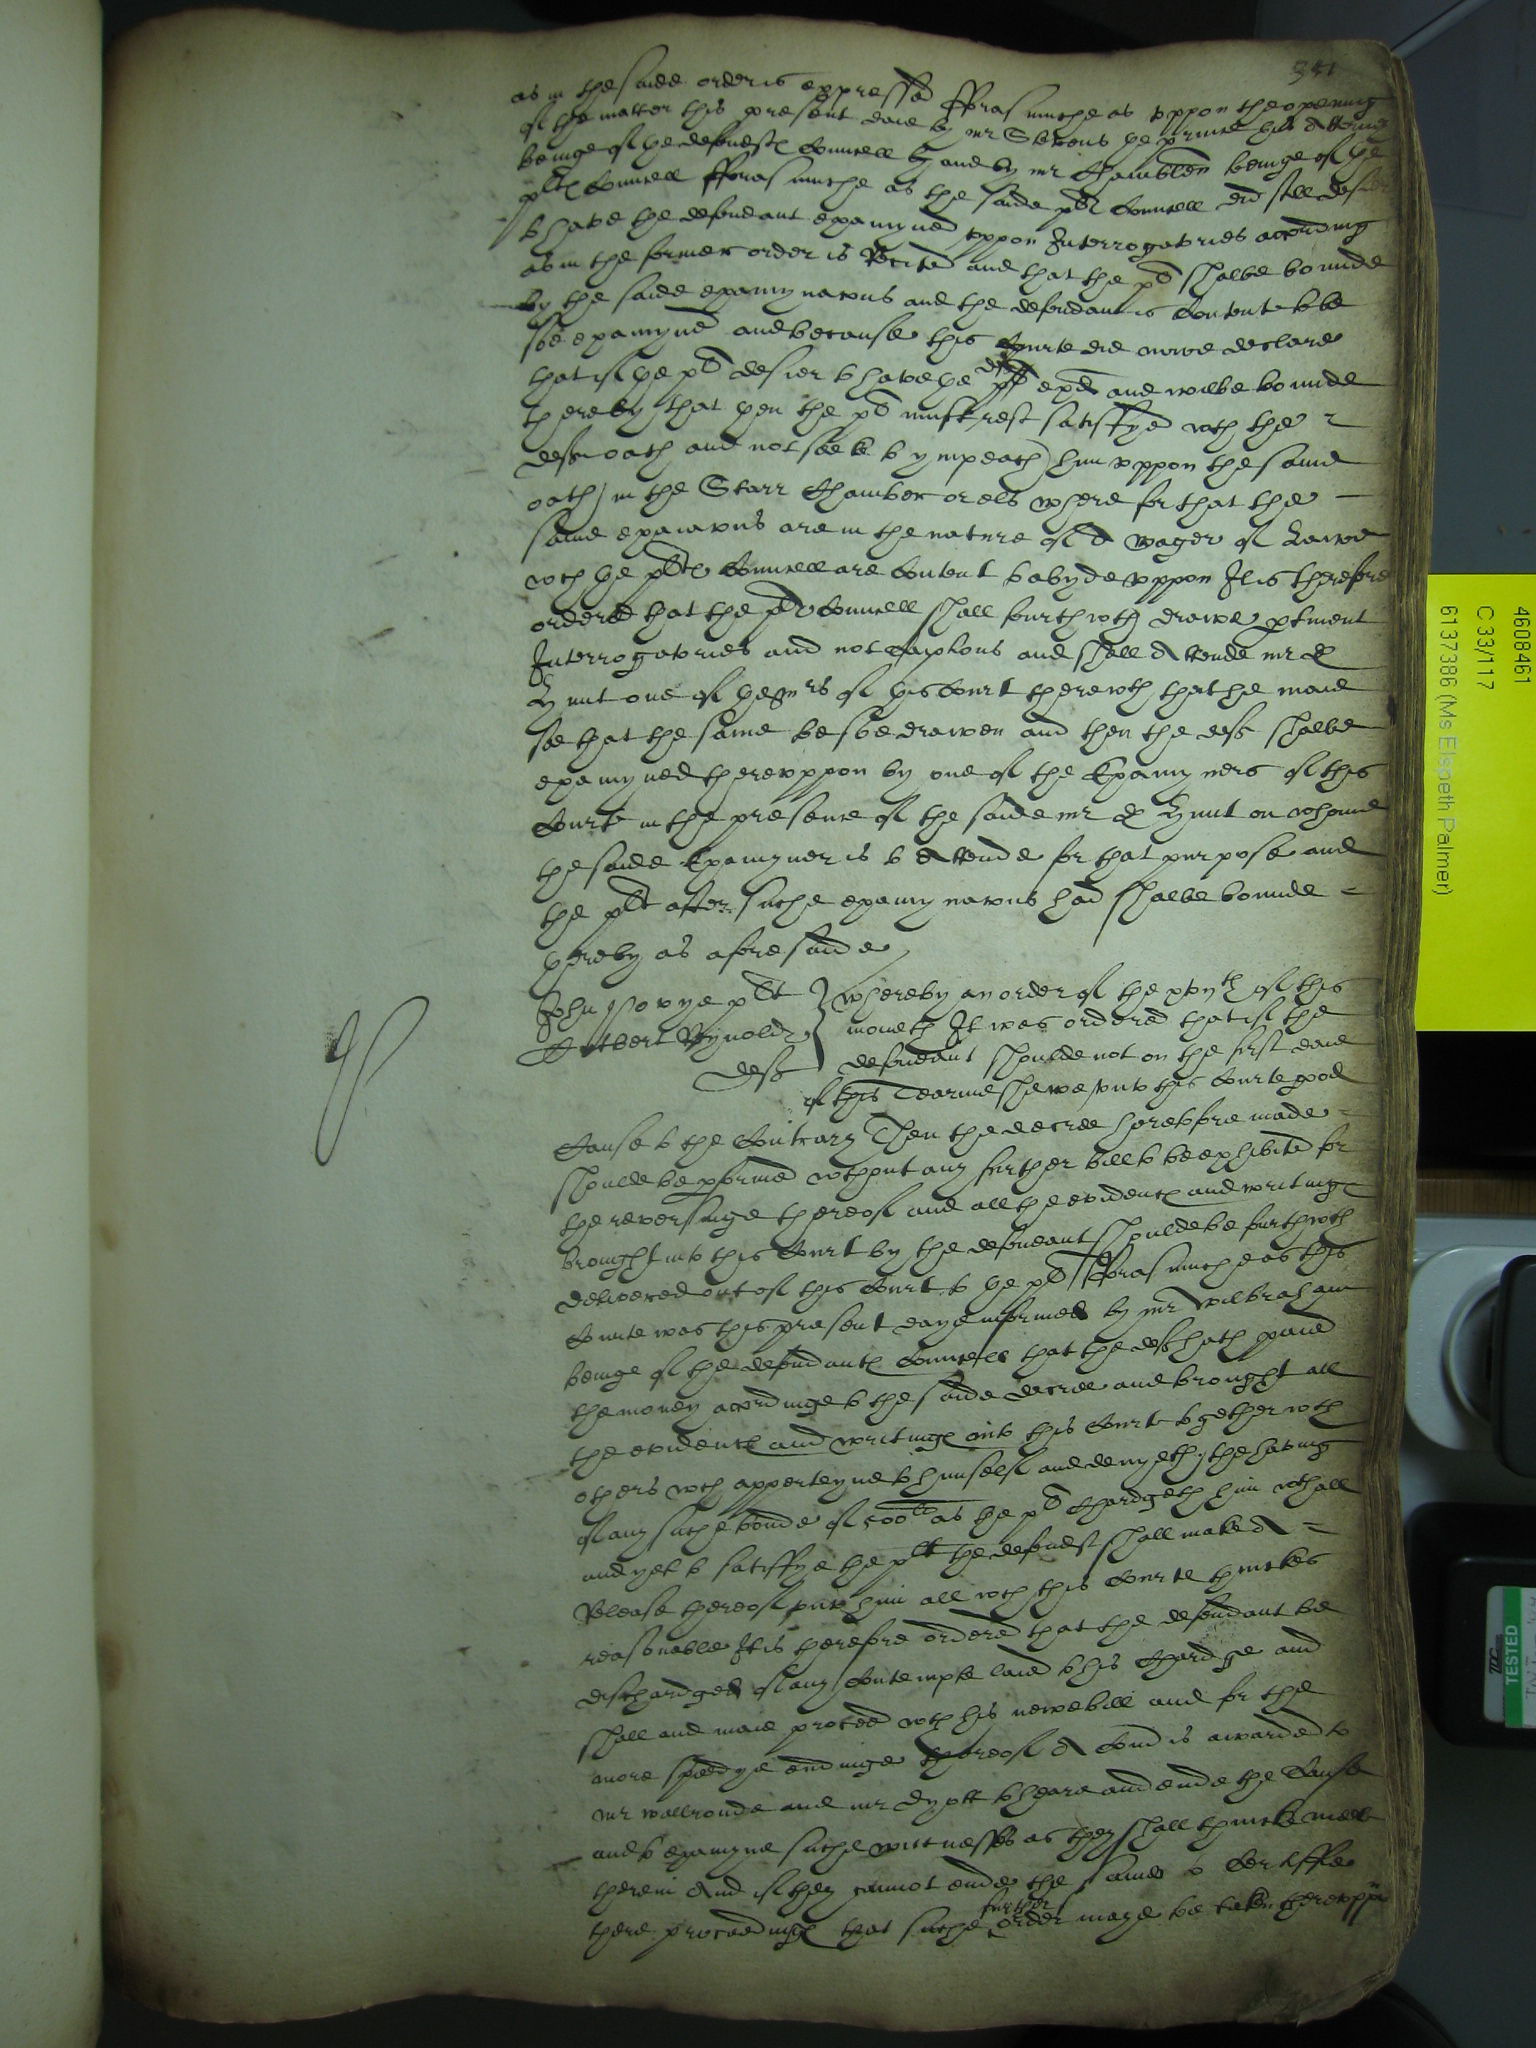 351
as in the saide order is expressed fforasmuche as vppon the opening
of the matter this present daie by mr Stevens ye
beinge of ye defendtes Councell and by mr Chamblen beinge of ye
pltes Councell fforasmuche as the saide pltes Councell did still desier
to have the defendant examyned vppon Interrogatories according
as in the former order is Recited and that the plt shalbe bounde
by the saide examynacons and the defendant is Content to be
soe examyned and because this Courte did nowe declare
that if ye plt desier to have ye deft exd and wilbe bounde
thereby that yen the plt must rest satisfyed wth the
deftes oath and not seeke to ympeach him vppon the same
oath in the Starr Chamber or els where for that the
same examacons are in the nature of A wager of Lawe
wch ye pltes Councell are Content to abyde vppon It is therefore
ordered that the pltes Councell shall furthwth drawe ptinent
Interrogatories and not Captious and shall Attende mr D
Hunt one of ye mrs of this Court therewth that he maie
see that the same be soe drawen and then the deft shalbe
examyned therevppon by one of the Examyners of this
Courte in the presence of the saide mr D Hunt on whome
the saide Examyner is to Attende for that purpose and
the plt after suche examynacons had shalbe bounde
yereby as aforesaide
John plt whereby an order of the xvth of this
Cutbert Reynoldes moneth It was ordered that if the
deft defendant shoulde not on the first daie
of this Tearme shewe vnto this Courte good
Cause to the Contrary Then the decree heretofore made
shoulde be pformed wthout any further bill to be exhibited for
the reversinge thereof and all the evidences and writinges
brought into this Court by the defendant shoulde be furthwth
delivered out of this Court to ye plt fforasmuche as this
Courte was this present daye informed by mr Wilbraham
beinge of the defendantes Councell that the deft hath paied
the money accordinge to the saide decree and brought all
the evidences and writinges into this Courte together wth
others wch apperteyne to himself and denyeth the having
of any suche bonde of 500li as the plt Chardgeth him wthall
and yet to satisfye the plt the defendt shall make A
Release thereof vnto him all wch this Courte thinkes
reasonable It is therefore ordered that the defendant be
dischardged of any Contempte laid to his Chardge and
shall and maie proceed wth his newe bill and for the
more speedye endinge thereof A Comd is awarded to
mr Wallronde and mr to heare and ende the Cause
and to examyne suche wittnesses as they shall thinke meete
therein And if they cannot ende the same to Certiffie
further
there proceedinges that suche order maye be taken therevppon
4608461
C 33/117
6137386 (Ms Elspeth Palmer)
TESTED